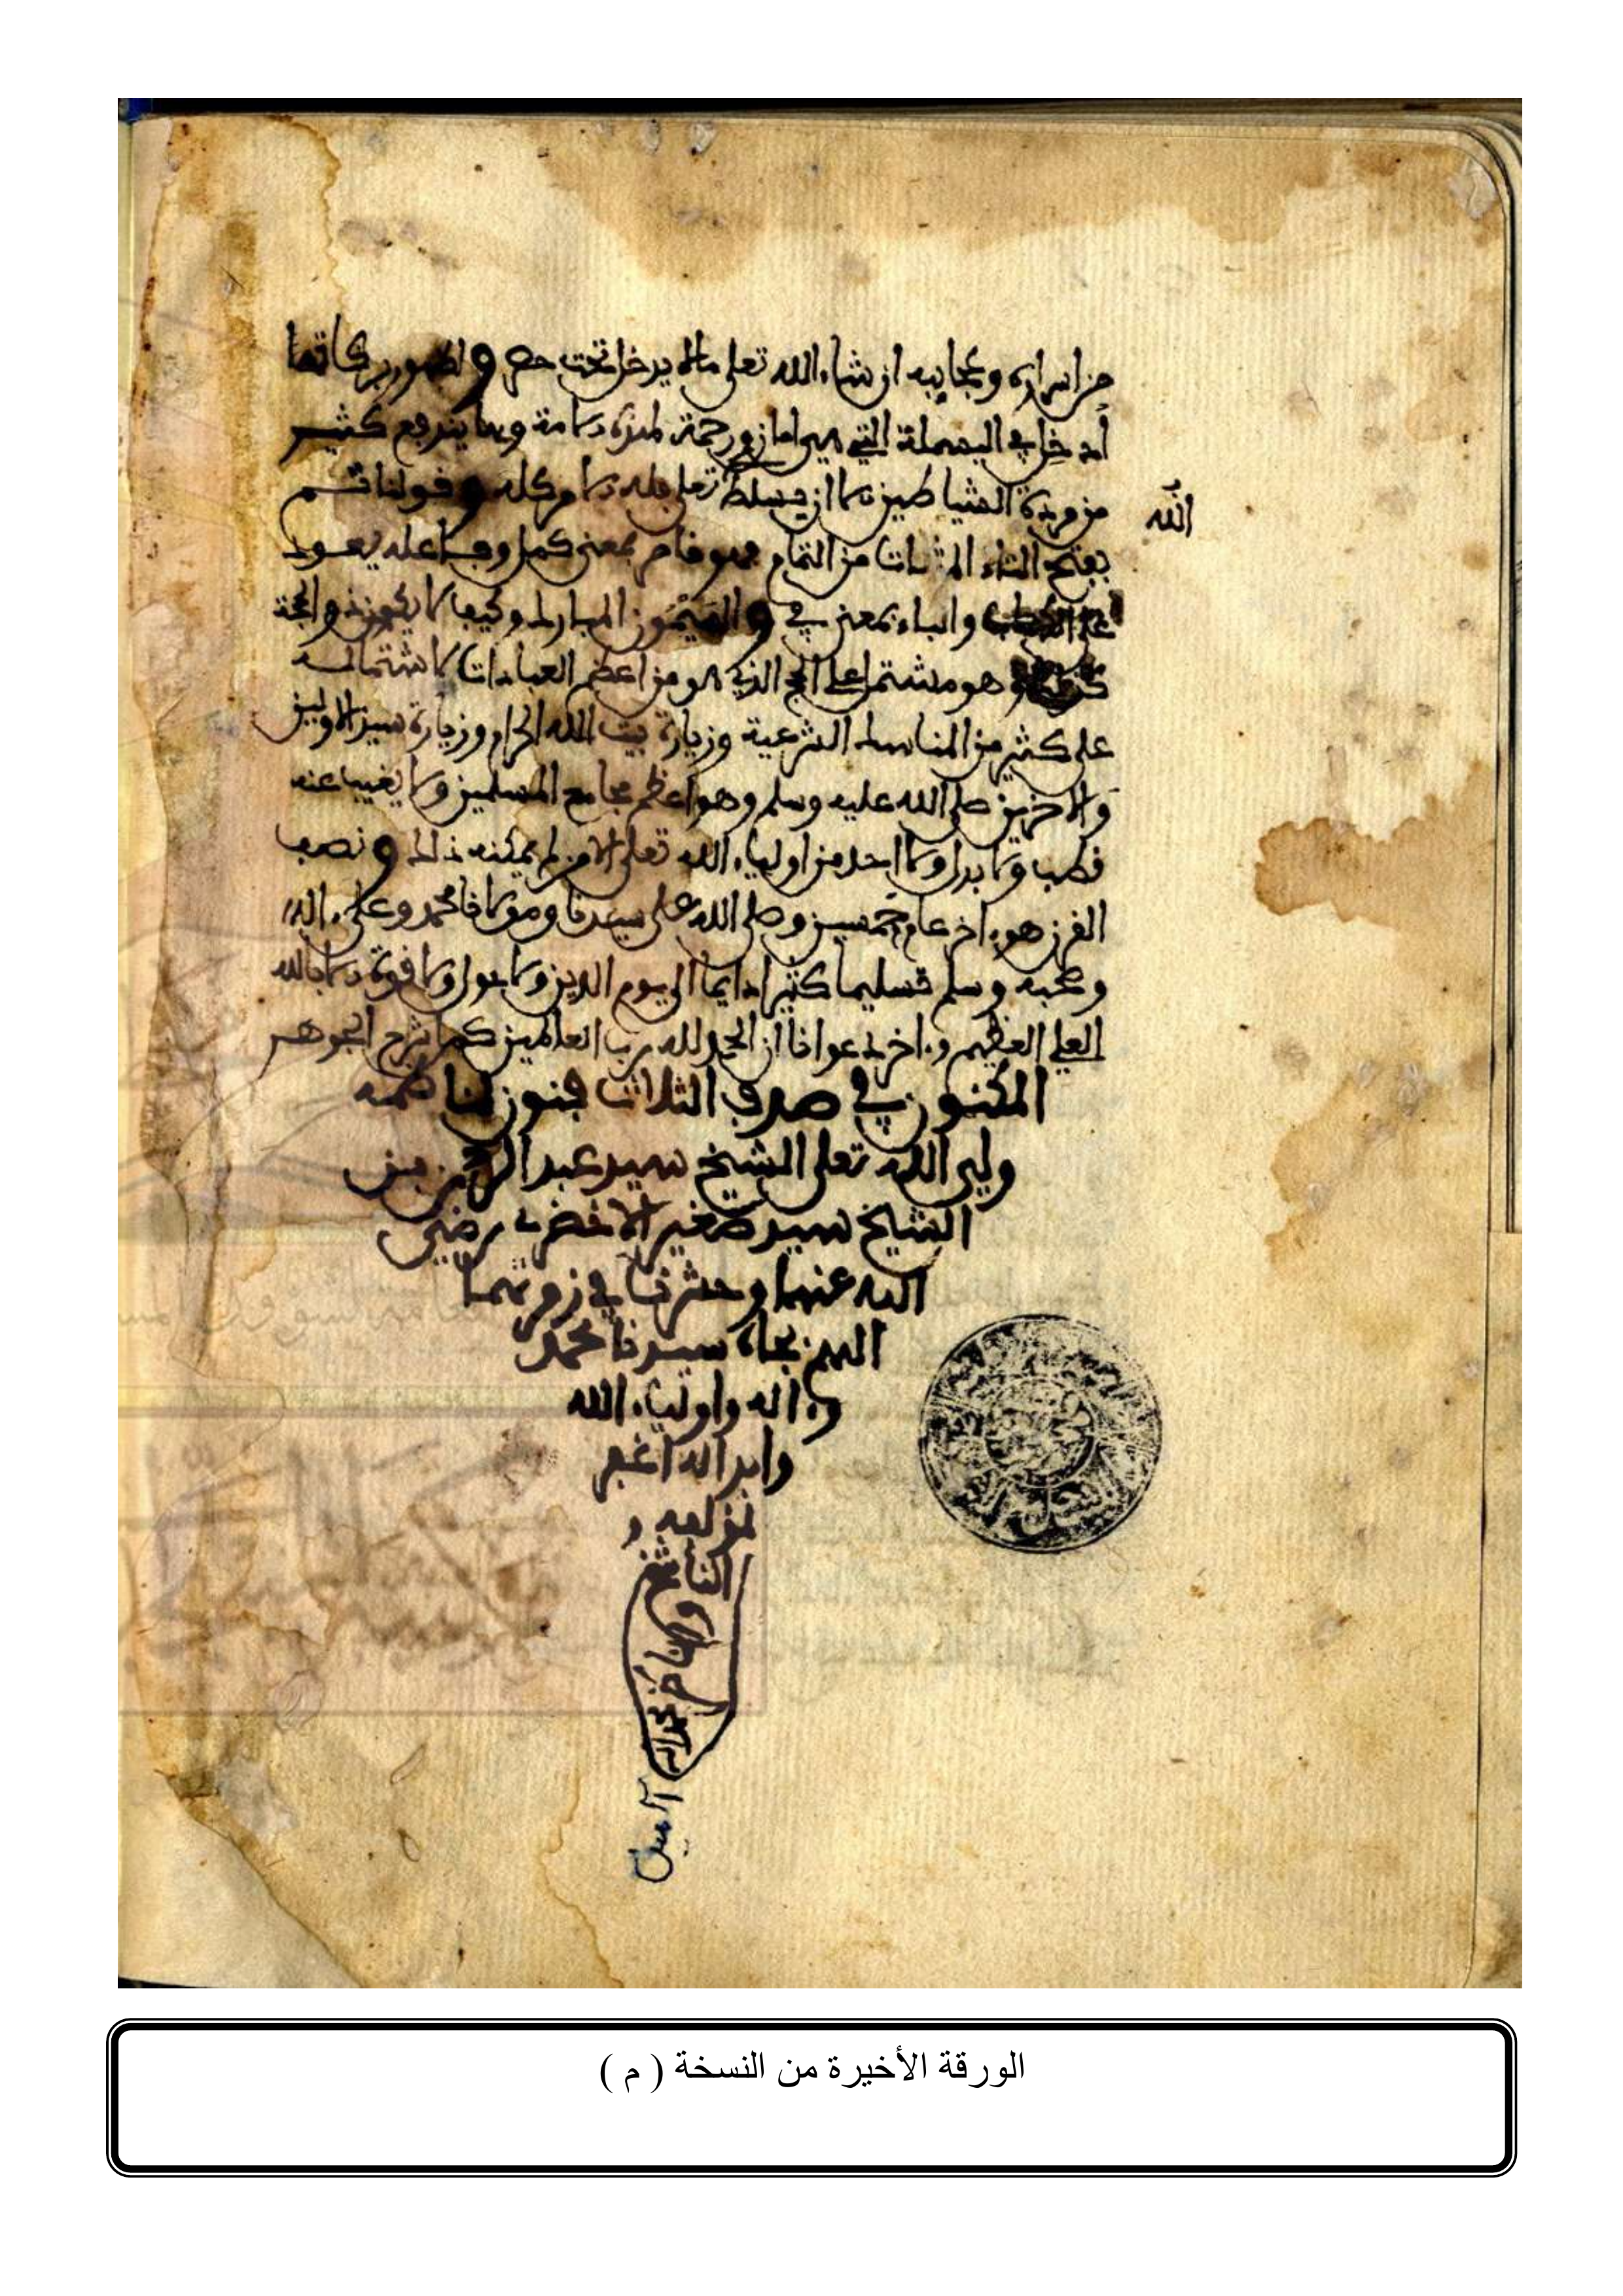 من اسراره وعجايبه ان شاء الله تعلى ما لم يدخل تحت حصر وظهور بركاتها
ادخل في البسملة التي هي امان ورحمة لهذه الامة وبها يندفع كثير
من مردة الشياطين الا ان يسلط تعلى فله الامر كله وقولنا تم
الله
بفتح التاء المثنات من التمام فهو فام بمعنى كمل وفاعله يعود
على والباء بمعنى في والميمون المبارك وكيف لا يكون ذو الحجة
وهو مشتمل على الحج الذي هو من اعظم العبادات لاشتماله
على كثير من المناسك الشرعية وزيارة بيت الله الحرام وزيارة سيد الاولين
والاخرين صلى الله عليه وسلم وهو اعظم مجامع المسلمين ولا يغيب عنه
قطب ولا بدل ولا احد من اولياء الله تعلى الا من لم يمكنه ذلك ونصف
القرن هو ءاخر عام خمسين وصلى الله على سيدنا ومولانا محمد وعلى ءاله
وصحبه وسلم تسليما كثيرا دايما الى يوم الدين ولا حول ولا قوة الا بالله
العلي العظيم وءاخر دعوانا ان الحمد لله رب العالمين كمل شرح الجوهر
المكنون في صدف الثلاث فنون لناظمه
ولي الله تعلى الشيخ سيد عبد الرحمن بن
الشيخ سيد صغير الاخضري رضي
الله عنهما وحشرنا في زمرتهما
امين بجاه سيدنا محمد
وءاله واولياء الله
وابد الله اغفر
لمؤلفه و
الناسخ
والناظر
آمين
الورقة الأخيرة من النسخة ( م )